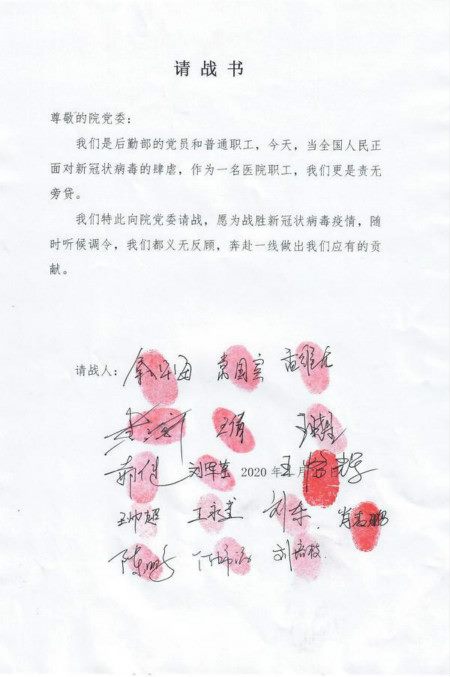 请战书
尊敬的院党委：
我们是后勤部的党员和普通职工，今天，当全国人民正
面对新冠状病毒的肆虐，作为一名医院职工，我们更是责无
旁贷。
我们特此向院党委请战，愿为战胜新冠状病毒疫情，随
时听候调令，我们都义无反顾，奔赴一线做出我们应有的贡
献。
请战人：
常国宾
王倩
郝佳 刘军 2020年 月
王帅超 王永 刘东 肖志鹏
陈鹏